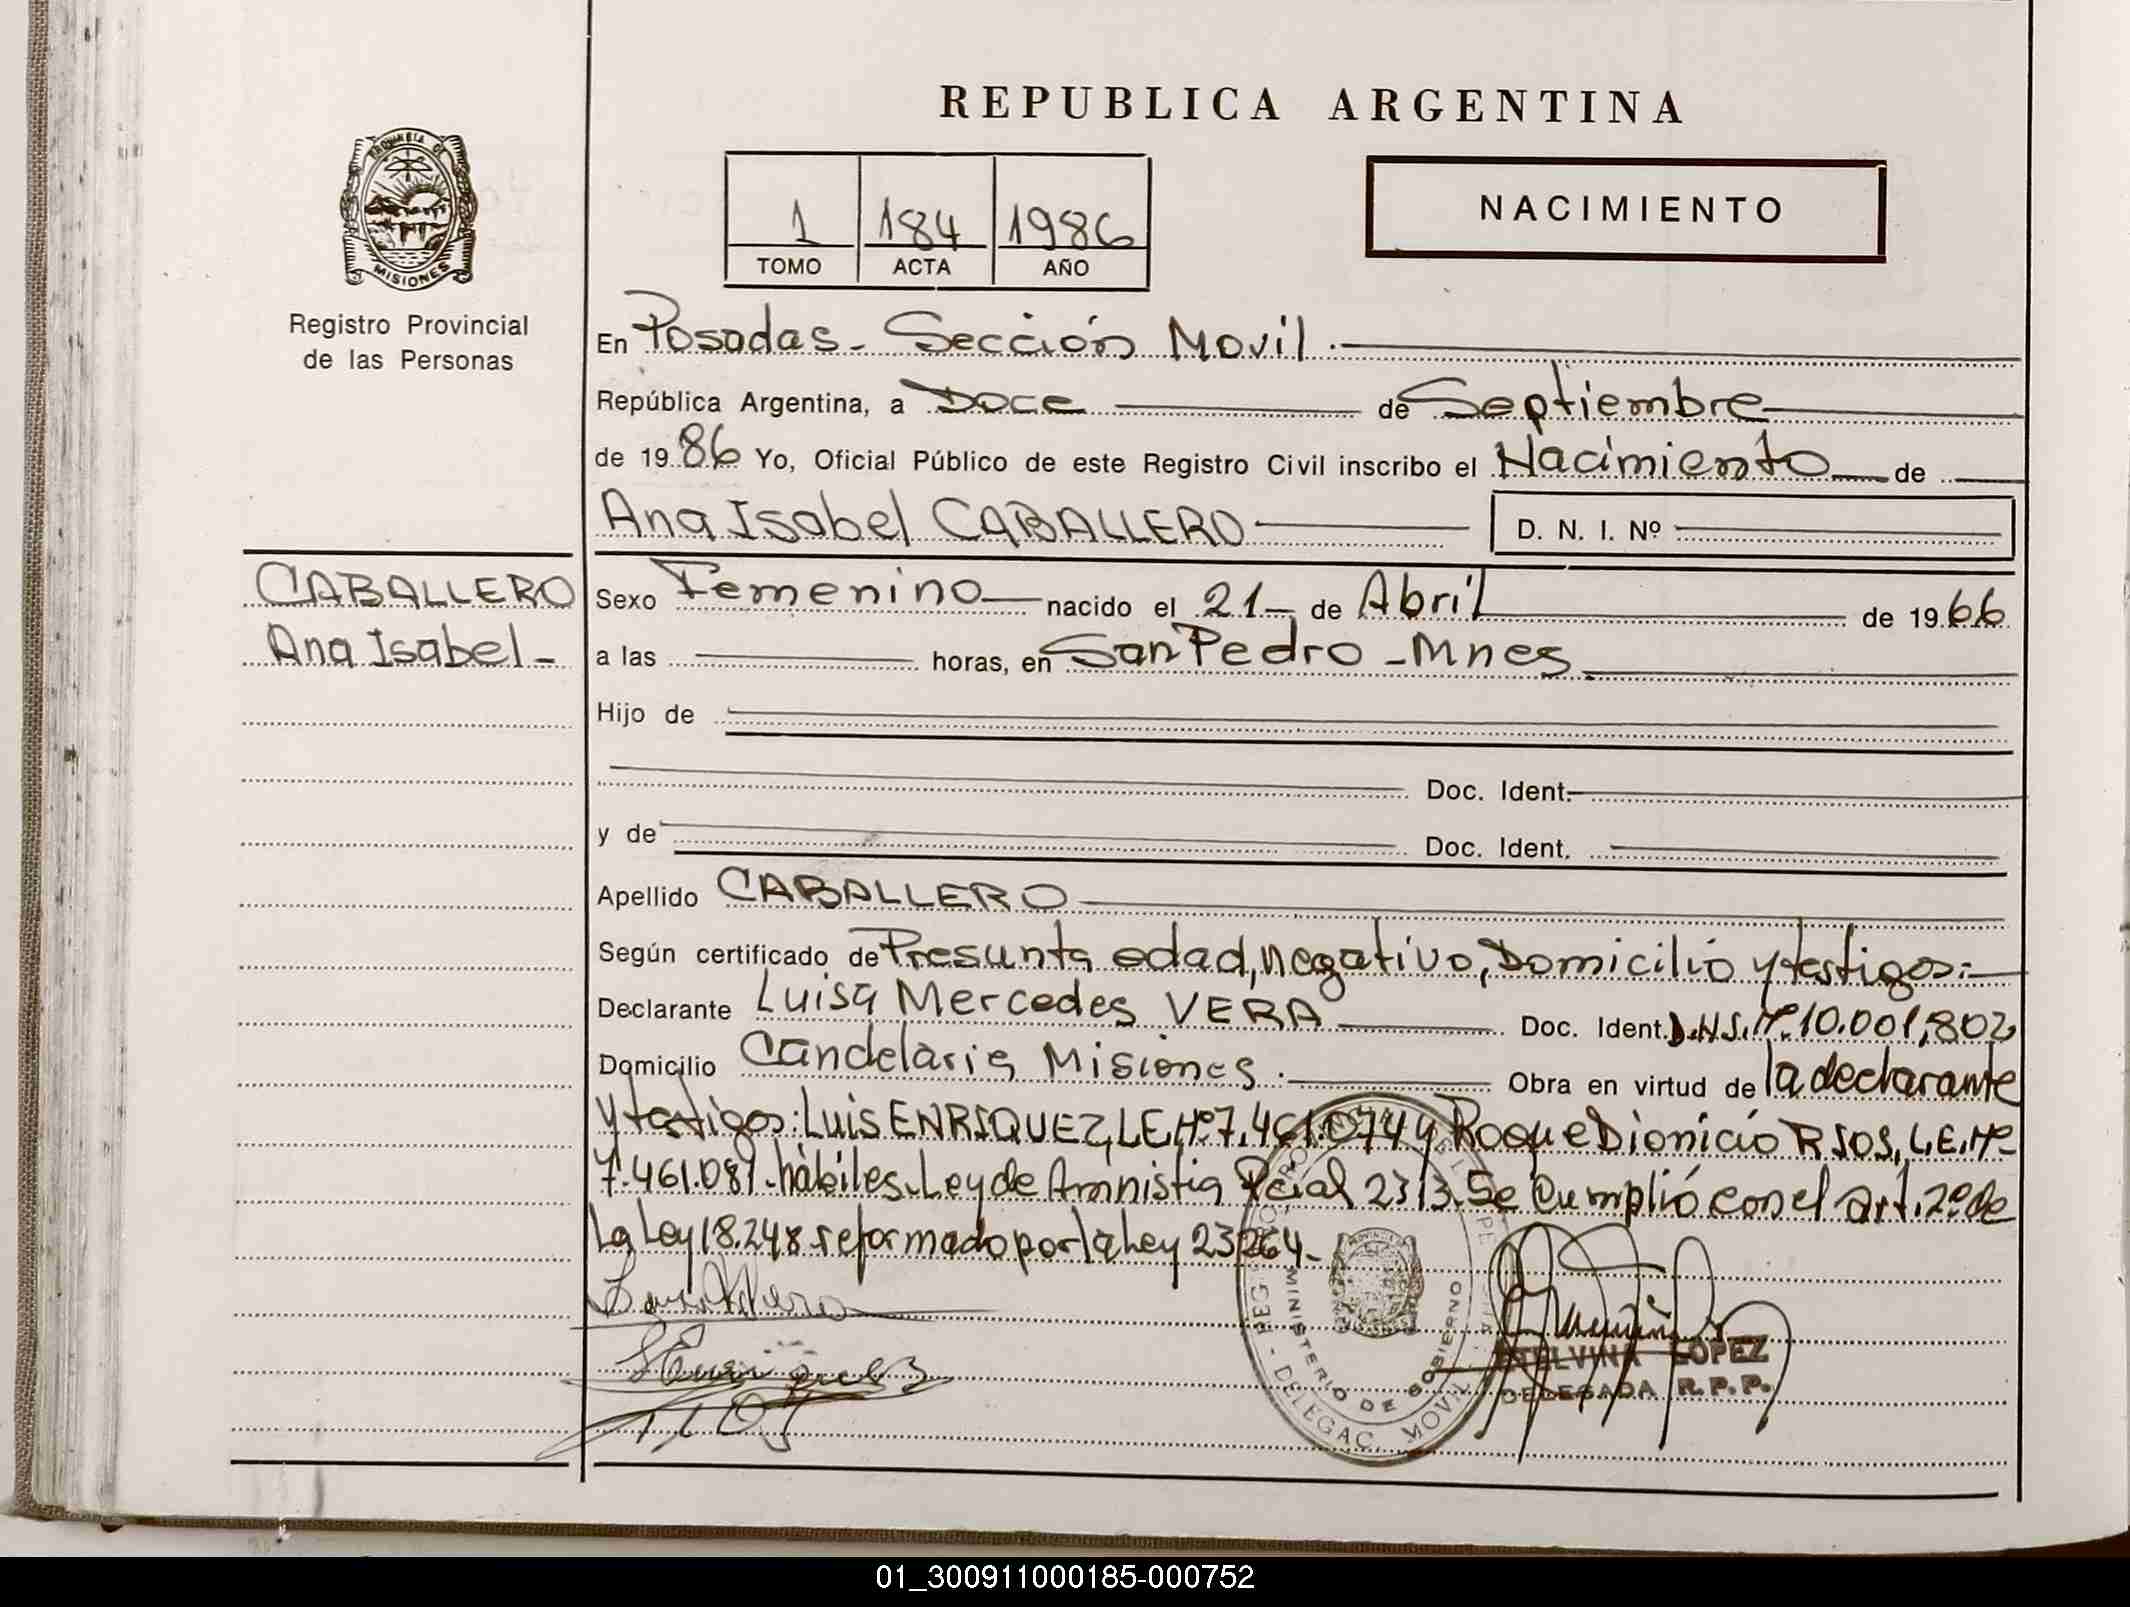 REPUBLICA ARGENTINA
PROVINCIA DE
MISIONES
Registro Provincial
de las Personas
1 184 1986
TOMO ACTA AÑO
NACIMIENTO
En Posadas - Sección Movil.
República Argentina, a Doce de Septiembre
de 19 86 Yo, Oficial Público de este Registro Civil inscribo el Nacimiento de
Ana Isabel CABALLERO D. N. I. Nº
CABALLERO
Ana Isabel -
Sexo Femenino nacido el 21 de Abril de 19 66
a las horas, en San Pedro - Mnes
Hijo de
Doc. Ident.
y de Doc. Ident.
Apellido CABALLERO
Según certificado de Presunta edad, negativo, Domicilio y testigos:
Declarante Luisa Mercedes VERA Doc. Ident. D.N.I. Nº 10.001,802
Domicilio Candelaria Misiones. Obra en virtud de la declarante
y testigos: Luis ENRIQUEZ, L.E, Nº 7.461.074 y Roque Dionicio RIOS, L.E. Nº
7.461.081 - hábiles. Ley de Amnistia Pcial 2313. Se Cumplió con el art. 2º de
La Ley 18.248 reformado por la Ley 23264 -
MINISTERIO DE GOBIERNO
DELEGAC. MOVIL
ETELVINA LOPEZ
DELEGADA R.P.P.
01_300911000185-000752